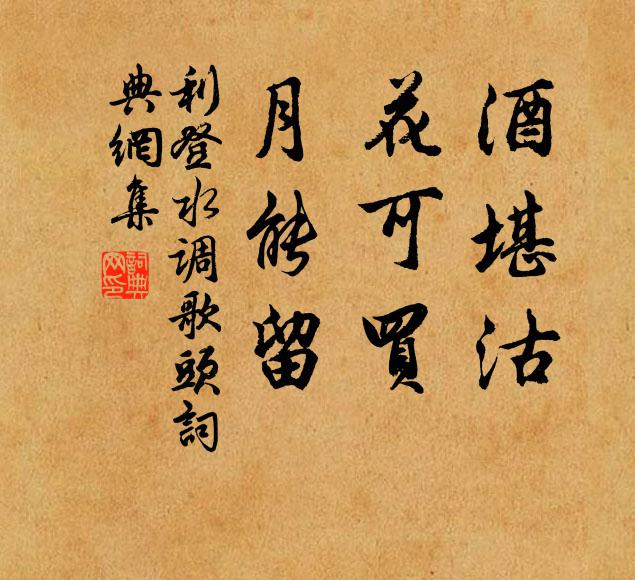 酒堪沽
花可買
月能留
利登水调歌頭詞
典網集
詞典網印